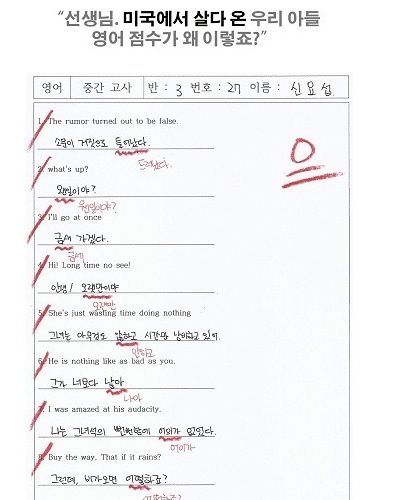 “선생님. 미국에서 살다 온 우리 아들
영어 점수가 왜 이렇죠?”
영어 중간 고사 반 : 3 번호 : 27 이름 : 신요섭
0
1. The rumor turned out to be false.
소문이 거짓으로 들어났다.
드러났다.
2. what's up?
왠일이야?
웬일이야?
3. I'll go at once
금새 가겠다.
금세
4. Hi! Long time no see!
안녕! 오랫만이야
오랜만
5. She's just wasting time doing nothing
그녀는 아무것도 않하고 시간만 낭비하고 있어.
안하고
6. He is nothing like as bad as you.
그가 너보다 낳아
나아
7. I was amazed at his audacity.
나는 그녀석의 뻔뻔함에 어의가 없었다.
어이가
8. Buy the way, That if it rains?
그런데, 비가오면 어떻하죠?